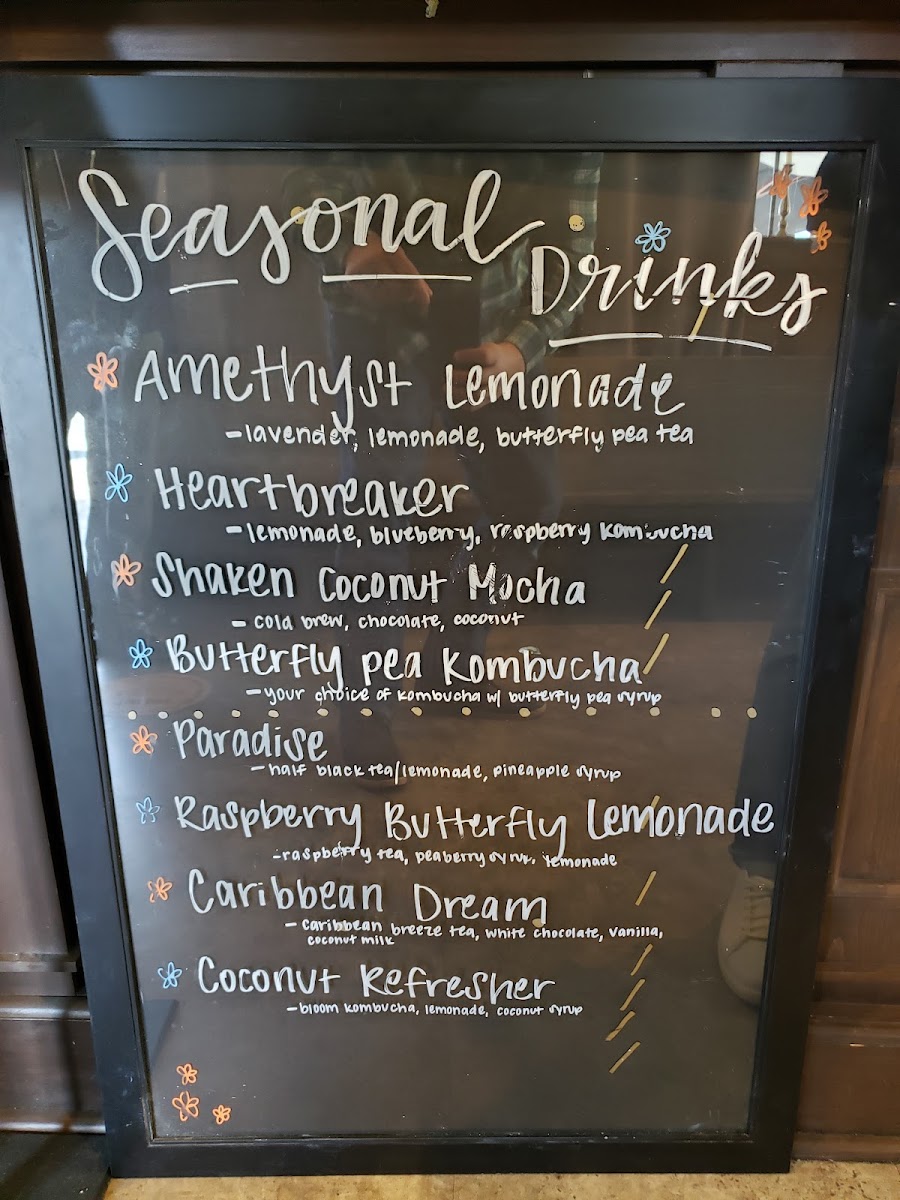 Seasonal
Drinks
Amethyst Lemonade
-lavender, lemonade, butterfly pea tea
Heartbreaker
-lemonade, blueberry, raspberry kombucha
Shaken Coconut Mocha
- cold brew, chocolate, coconut
Butterfly pea kombucha
-your choice of kombucha w/ butterfly pea syrup
Paradise
-half black tea/lemonade, pineapple syrup
Raspberry Butterfly Lemonade
-raspberry tea, peaberry syrup, lemonade
Caribbean Dream
- Caribbean breeze tea, white chocolate, vanilla,
coconut milk
Coconut Refresher
-bloom kombucha, lemonade, coconut syrup